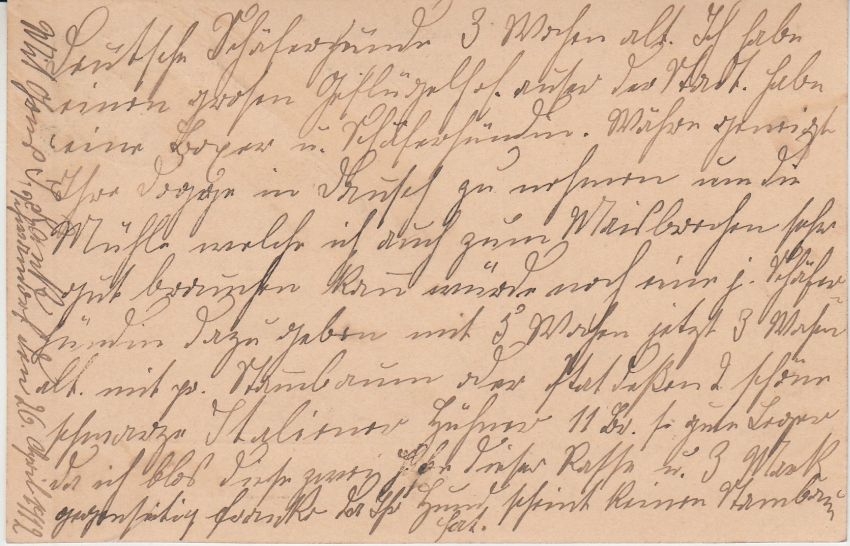 Deutsche Schäferhunde 3 Wochen alt. Ich habe
einen grosen Geflügelhof auser der Stadt. habe
eine Boxer u. Schäferhündin. Währe geneigt
Ihre Dogge in Tausch zu nehmen um die
Mühle welche ich auch zum Maisbrechen sehr
gut brauchen kan würde noch eine j. Schäfer
hündin dazu geben mit 5 Wochen jetzt 3 Wochen
alt. mit p. Stambaum oder stat deßen 2 schöne
schwarze Italiener Hühner 11 Br. s. gute Leger
da ich blos diese zwei habe dieser Rasse u. 3 Mark
gegenseitig franko da Ihr Hund scheint keinen Stambaum
hat.
den 26. April 1912